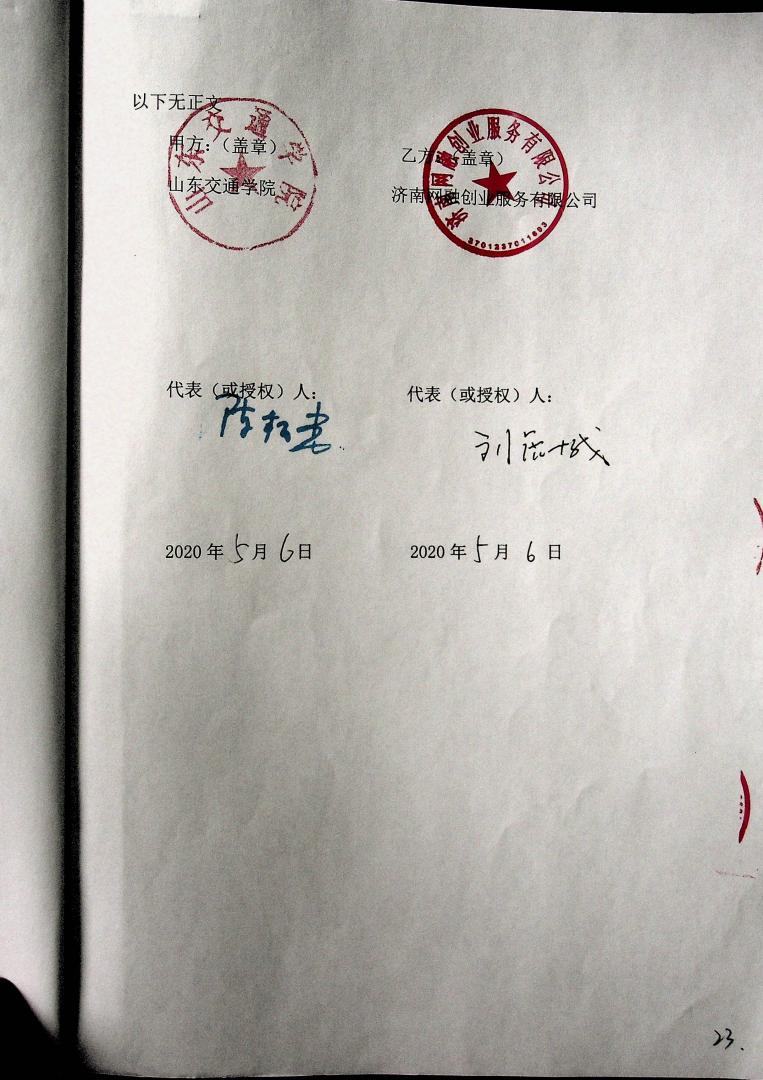 以下无正文
甲方：（盖章）
山东交通学院
山东交通学院
乙方：（盖章）
济南网融创业服务有限公司
济南网融创业服务有限公司
3701237011603
代表（或授权）人：
代表（或授权）人：
2020 年 5 月 6 日
2020 年 5 月 6 日
23.